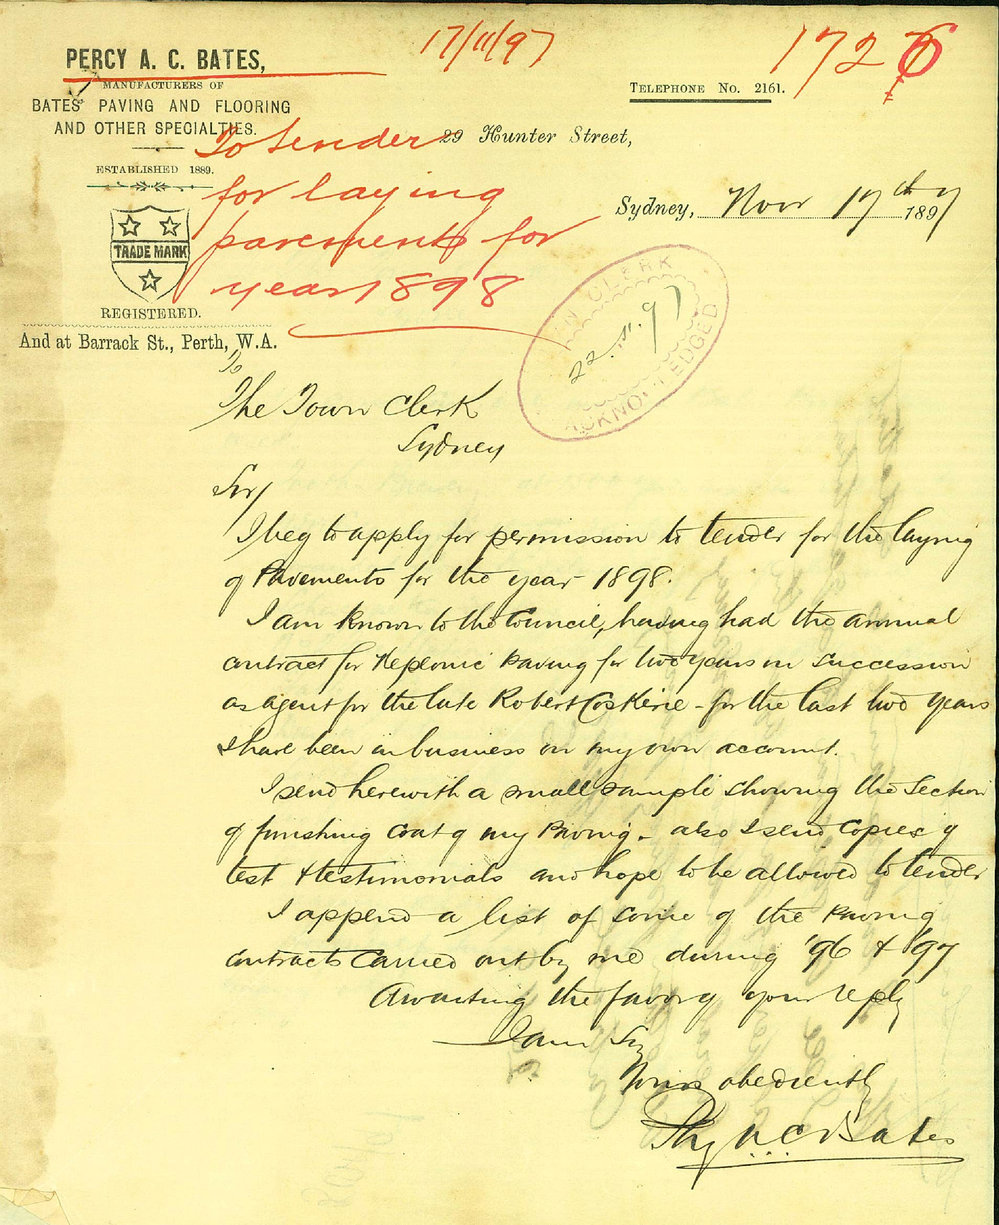 17/11/97
1726
PERCY A. C. BATES,
MANUFACTURERS OF
BATES' PAVING AND FLOORING
AND OTHER SPECIALTIES.
ESTABLISHED 1889.
TRADE MARK
REGISTERED.
And at Barrack St., Perth, W.A.
TELEPHONE No. 2161.
29 Hunter Street,
Sydney, Nov 17th 1897
To tender
for laying
pavements for
year 1898
TOWN CLERK
22.11.97
ACKNOWLEDGED
To
The Town Clerk
Sydney
Sir/
I beg to apply for permission to tender for the laying
of Pavements for the year 1898.
I am known to the Council, having had the annual
contract for Neponic Paving for two years in succession
as agent for the late Robert - for the last two years
I have been in business on my own account.
I send herewith a small sample showing the section
of finishing coat of my Paving - also I send copies of
test & testimonials and hope to be allowed to tender
I append a list of some of the Paving
contracts carried out by me during '96 & '97
Awaiting the favor of your reply
I am Sir
Yours obediently
Percy A C Bates